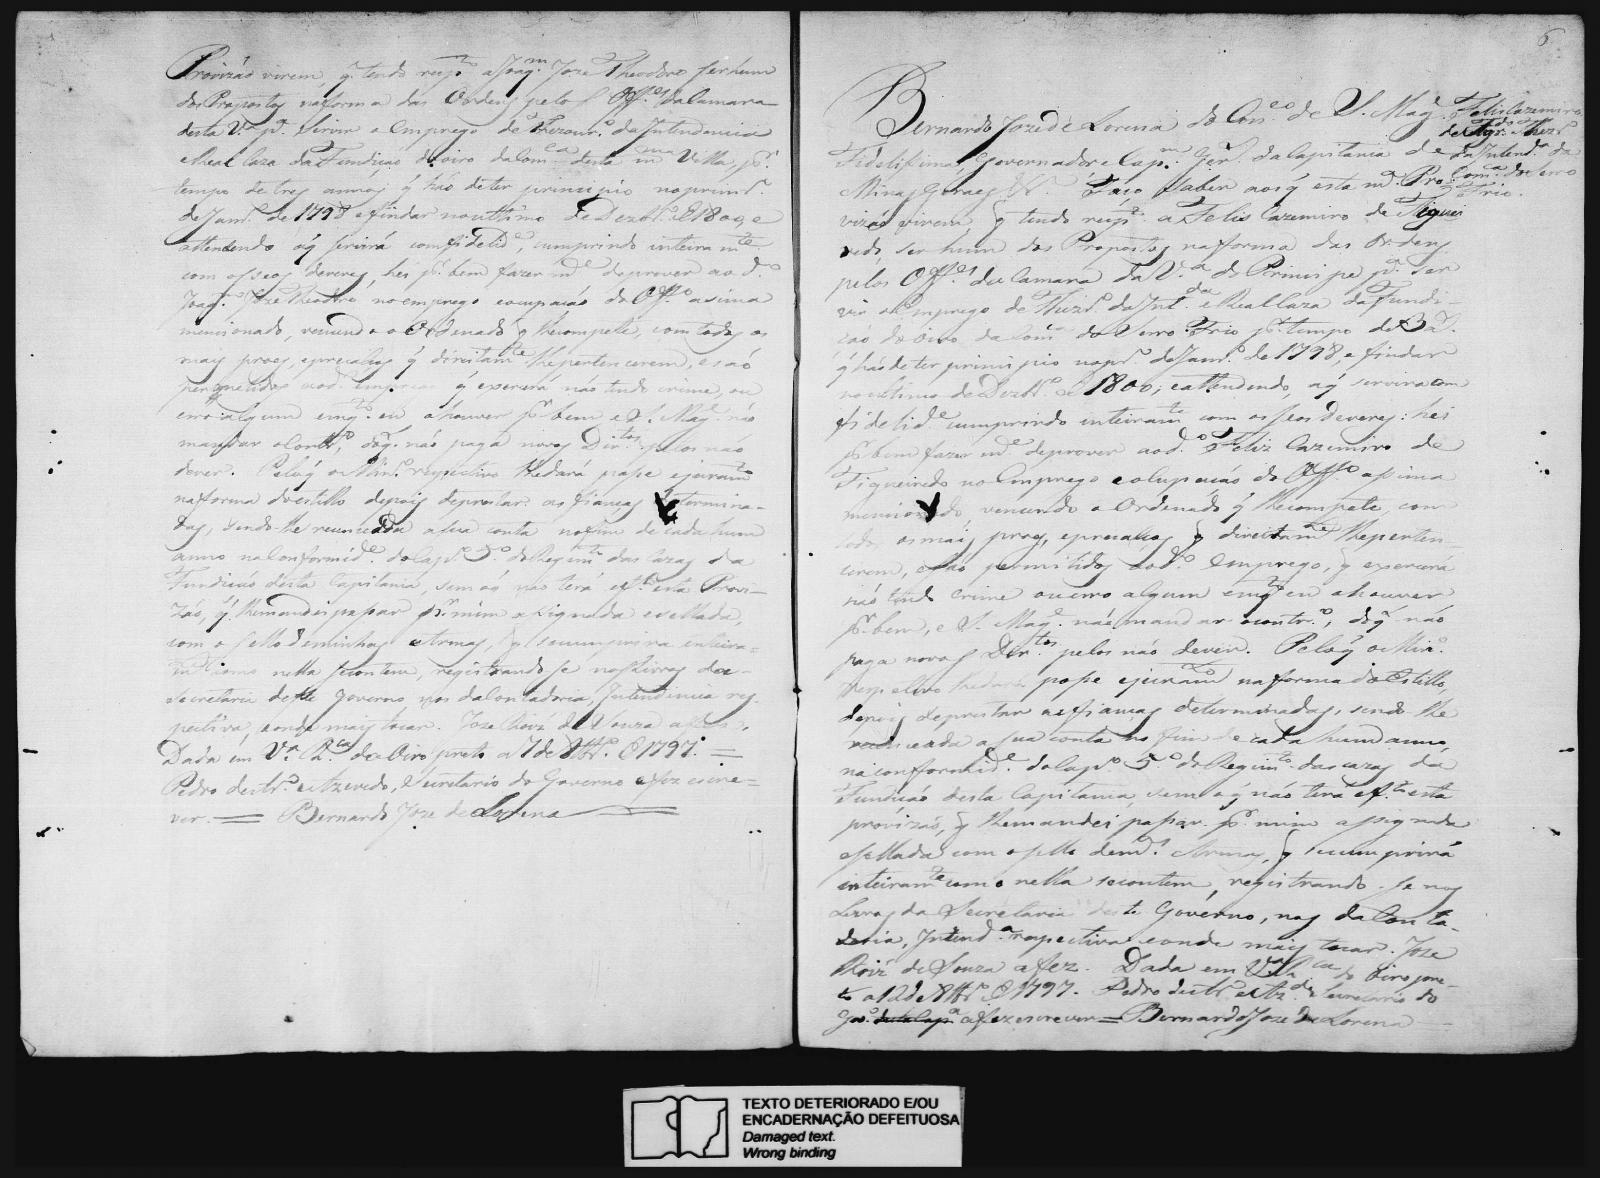 Provizão virem, q̃ tendo resp.to a Joaq.m Joze Theodoro ser hum
dos Propostos na forma das Ordens pelos Off.es da Camara
desta V.a p.a Servir o Emprego de Thezour.o da Intendencia
e Real Caza da Fundição do oiro da Com.ca desta m.ma Villa, p.r
tempo de tres annos q̃ hão de ter principio no prim.ro
de Jan.ro de 1798 e findar no ultimo de Dezbr.o de 1800, e
attendendo a q̃ servirá com fidelid.e, cumprindo inteiram.te
com os seos deveres, hei p.r bem fazer m.ce de prover ao d.o
Joaq.m Joze Theodoro, no emprego e occupação do Off.o asima
mencionado, vencendo o Ordenado q̃ lhe compete, com todos os
mais proes, e precalços q̃ direitam.te lhe pertencerem, e são
permetidos ao d.o Emprego q̃ exercerá não tendo crime, ou
erro algum em q.to eu o houver p.r bem e S. Mag.e não
mandar o contr.o, do q̃ não paga novos Dir.tos pelos não
dever. Pelo q̃ o Min.o respectivo lhe dará posse e juram.to
na forma do estillo depois de prestar as fianças determina-
das, sendo lhe reencada a sua conta no fim de cada hum
anno na conformid.e do Cap.o 5.o do Regim.to das Cazas da
Fundição desta Capitania, sem o q̃ não terá eff.to esta Provi-
zão, q̃ lhe mandei passar p.r mim assignada e sellada,
com o sello de minhas Armas, q̃ se cumprirá inteira-
m.te como nella se contem, registrando se nos Livros da
Secretaria deste Governo, nos da Contadoria, Intendencia res-
pectiva, e onde mais tocar. Joze Roiz de Souza a fez.
Dada em V.a R.ca do Oiro preto a 1 de 8br.o de 1797. =
Pedro de Ar.o e Azevedo, Secretario do Governo a fez escre-
ver. = Bernardo Joze de Lorena =
6
Felis Cazemiro
de Figr.do Thez.ro
da Intend.a da
Com.ca do Serro
Frio.
Bernardo Joze de Lorena do Con.co de S. Mag.e
Fidelissima, Governador e Cap.m Gen.l da Capitania de
Minas Geraes &.a Faço Saber aos q̃ esta m.a Pro-
vizão virem, q̃ tendo resp.to a Felis Cazemiro de Figuei-
redo, ser hum dos Propostos na forma das Ordens
pelos Off.es da Camara da V.a do Principe p.a ser-
vir o Emprego de Thez.ro da Int.da e Real Caza da Fundi-
ção do oiro da Com.ca do Serro Frio p.r tempo de 3 a.s
q̃ hão de ter principio no pr.o de Jan.ro de 1798, e findar
no ultimo de Dezbr.o de 1800; e attendendo, a q̃ servirá com
fidelid.e cumprindo inteiram.te com os seos deveres: hei
p.r bem fazer m.ce de prover ao d.o Feliz Cazemiro de
Figueiredo no Emprego e occupação do Off.o asima
mencionado vencendo o Ordenado q̃ lhe compete, com
todos os mais proes, e precalços q̃ direitam.te lhe perten-
cerem, e são permitidos ao d.o Emprego, q̃ exercerá
não tendo crime ou erro algum em q.to eu o houver
p.r bem, e S. Mag.e não mandar o contr.o, do q̃ não
paga novos Dir.tos pelos não dever. Pelo q̃ o Min.o
respectivo lhe dará posse e juram.to na forma do Estillo,
depois de prestar as fianças determinadas, sendo lhe
reencada a sua conta no fim de cada hum anno,
na conformid.e do Cap.o 5.o do Regim.to das cazas da
Fundição desta Capitania, sem o q̃ não terá eff.to esta
provizão, q̃ lhe mandei passar p.r mim assignada
e sellada com o sello de m.as Armas, q̃ se cumprirá
inteiram.te como nella se contem, registrando-se nos
Livros da Secretaria deste Governo, nos da Conta-
doria, Intend.a respectiva e onde mais tocar. Joze
Roiz de Souza a fez. Dada em V.a R.ca do Oiro pre-
to a 12 de 8br.o de 1797. Pedro de Ar.o e Az.do Secretario do
Gov.o desta Cap.a a fez escrever = Bernardo Joze de Lorena
TEXTO DETERIORADO E/OU
ENCADERNAÇÃO DEFEITUOSA
Damaged text.
Wrong binding